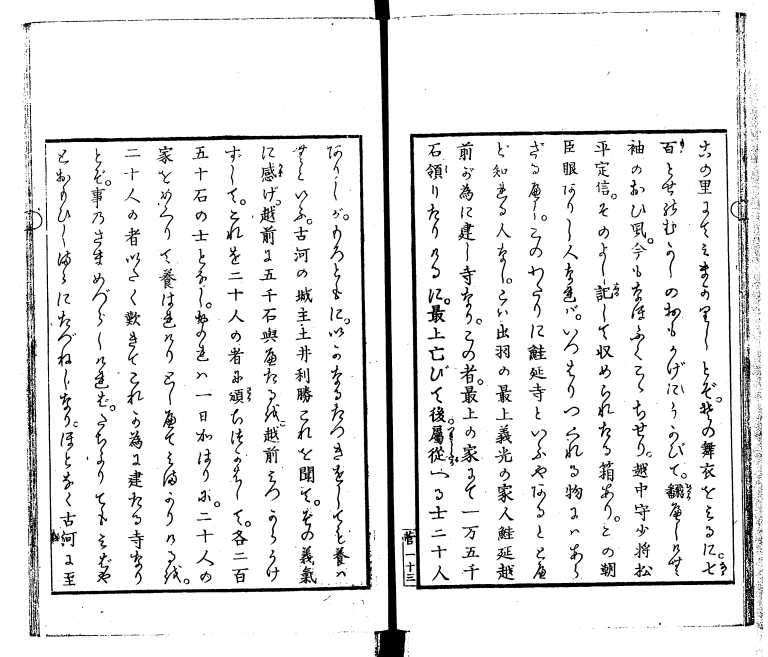 この里にてみまかりしとぞ。その舞衣をみるに。七
百とせのむかしのおもかげにうかびて。飜へしけむ
袖のおひ風。今もなほふくこゝちせり。越中守少将松
平定信。そのよし記して收められたる箱あり。この朝
臣眼ありし人なれば。いつはりつくれる物にはあら
ざるべし。このわたりに鮭延寺といふやあるととへ
ど知れる人なし。こは出羽の最上義光の家人鮭延越
前が為に建し寺なり。この者。最上の家にて一万五千
石領りたりけるに。最上亡びて後。屬從へる士二十人
菅一十三
ありしが。もろともに。いかなるたつきをしても養は
むといふ。古河の城主土井利勝これを聞て。その義氣
に感げ。越前に五千石與へたるを。越前みづからうけ
ずして。これを二十人の者に頒ちつかはして。各二百
五十石の士となし。おのれは一日かはりに。二十人の
家をめぐりて養はれけりとしへてみまかりけるを。
二十人の者いたく歎きてこれが為に建たる寺なり
とぞ。事のさまめづらしければ。たちよりてもみばや
とおもひしまゝにたづねしなり。ほどなく古河に至